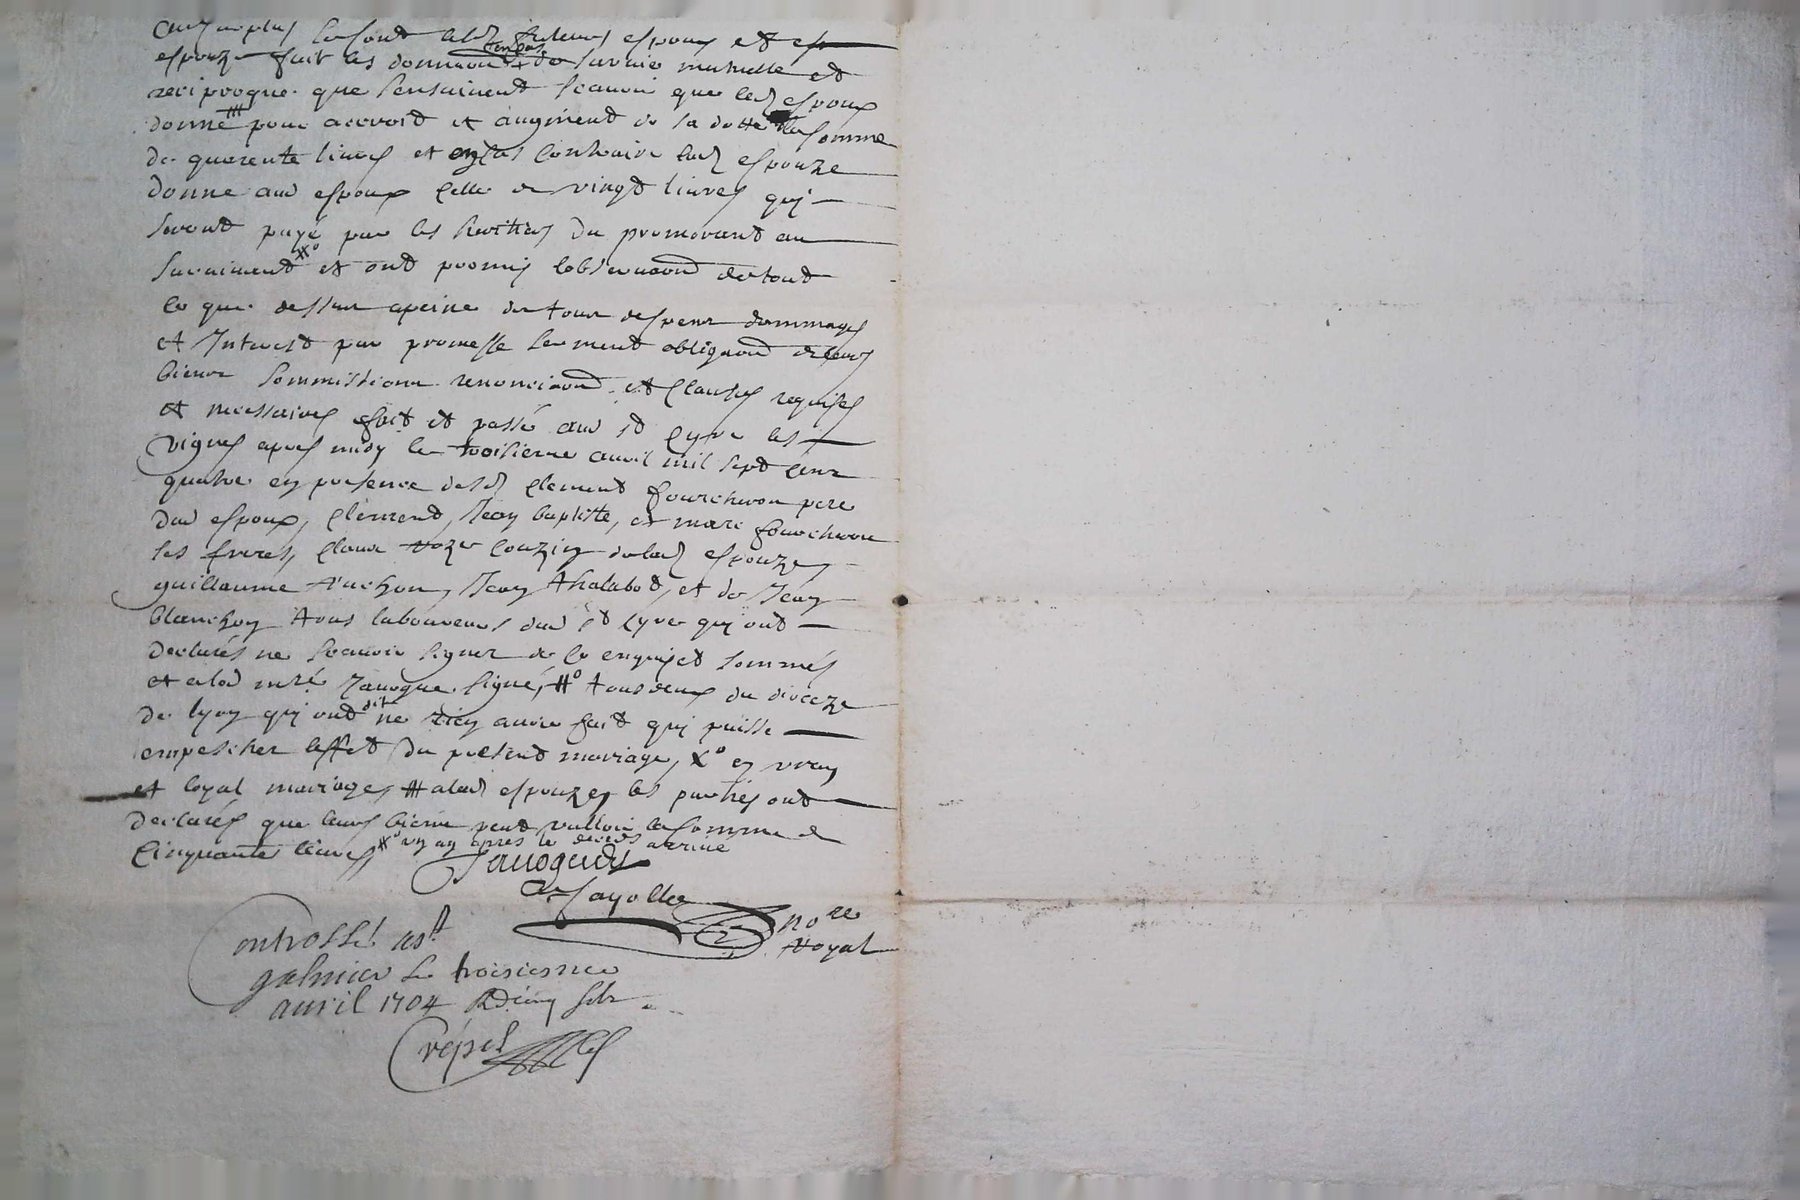 se sont lesd futeurs espoux et esp
espouze fait les donnaons de survie mutuelle et
reciproque que sensuivent scavoir que led espoux
donne pour acroist et augment de la dotte la somme
de quarente livres et au cas contraire lad espouze
donne aud espoux celle de vingt livres qui
seront payé par les heritiers du premorant au
survivant et ont promis lobservaon de tout
ce que dessus a peine de tous despens dommages
et Interest par promesse serment obligaon de leurs
biens sommissions renonciaon et clauses requises
et necessaires fait et passé aud st Cyre les
vignes apres midy le troisieme avril mil sept cens
quatre en presence desd Clement fourcheron pere
dud espoux, Clement, Jean baptiste, et marc fourcheron
ses freres, Cousin de lad espouze,
guillaume Jean Thalabot, et de Jean
blanchon tous laboureurs dud st Cyre qui ont
declarés ne scavoir signer de ce enquis et sommés
et led signé, #o tous deux du dioceze
de lyon qui ont dit ne rien avoir fait qui puisse
empescher leffet du present mariage, Xo en vray
et loyal mariage, # a lad espouze, les parties ont
declarés que leurs biens peut valloir la somme de
Cinquante livres apres le deceds arrivé
Cayolle
nore
Royal
Controllé a st
galmier le troisiesme
avril 1704
Crépet